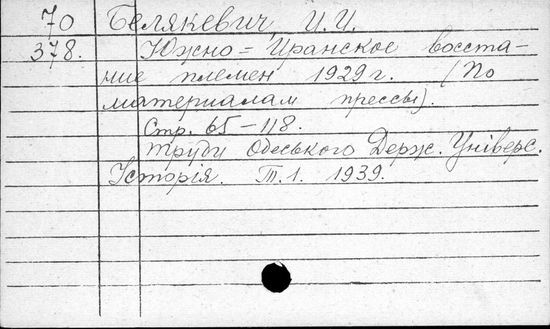 70 Белякевич, И. И.
378. Южно-Иранское восста-
ние племен 1929 г. (По
материалам прессы).
Стр. 65-118.
Труди Одеського Держ. Універс.
Історія. Т. 1. 1939.